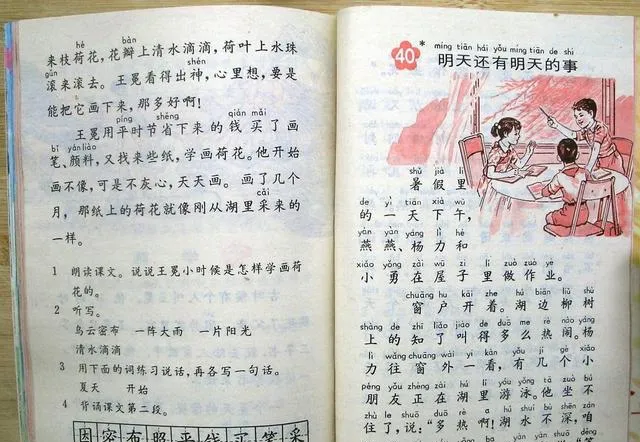 hé bàn
来枝荷花，花瓣上清水滴滴，荷叶上水珠
gǔn shén
滚来滚去。王冕看得出神，心里想，要是
能把它画下来，那多好啊！
píng shěng qián mǎi
王冕用平时节省下来的钱买了画
bǐ yánliào
笔、颜料，又找来些纸，学画荷花。他开始
画不像，可是不灰心，天天画。画了几个
cǎi
月，那纸上的荷花就像刚从湖里采来的
一样。
1 朗读课文。说说王冕小时候是怎样学画荷
花的。
2 听写。
乌云密布 一阵大雨 一片阳光
清水滴滴
3 用下面的词练习说话，再各写一句话。
夏天 开始
4 背诵课文第二段。
因密布照平钱买笔采
míng tiān hái yǒu míng tiān de shì
40* 明天还有明天的事
shǔ jià lǐ
暑假里
de yì tiān xià wǔ
的一天下午，
yàn yàn yáng lì hé
燕燕、杨力和
xiǎo yǒng zài wū zi lǐ zuò zuò yè
小勇在屋子里做作业。
chuāng hu kāi zhe hú biān liǔ shù
窗户开着。湖边柳树
shàng de zhī liǎo jiào de duō me rè nào yáng
上的知了叫得多么热闹。杨
lì wǎng chuāng wài yí kàn yǒu jǐ gè xiǎo
力往窗外一看，有几个小
péng yǒu zhèng zài hú lǐ yóu yǒng tā zuò bu
朋友正在湖里游泳。他坐不
zhù le shuō duō rè a hú shuǐ bù shēn zán
住了，说：“多热啊！湖水不深，咱